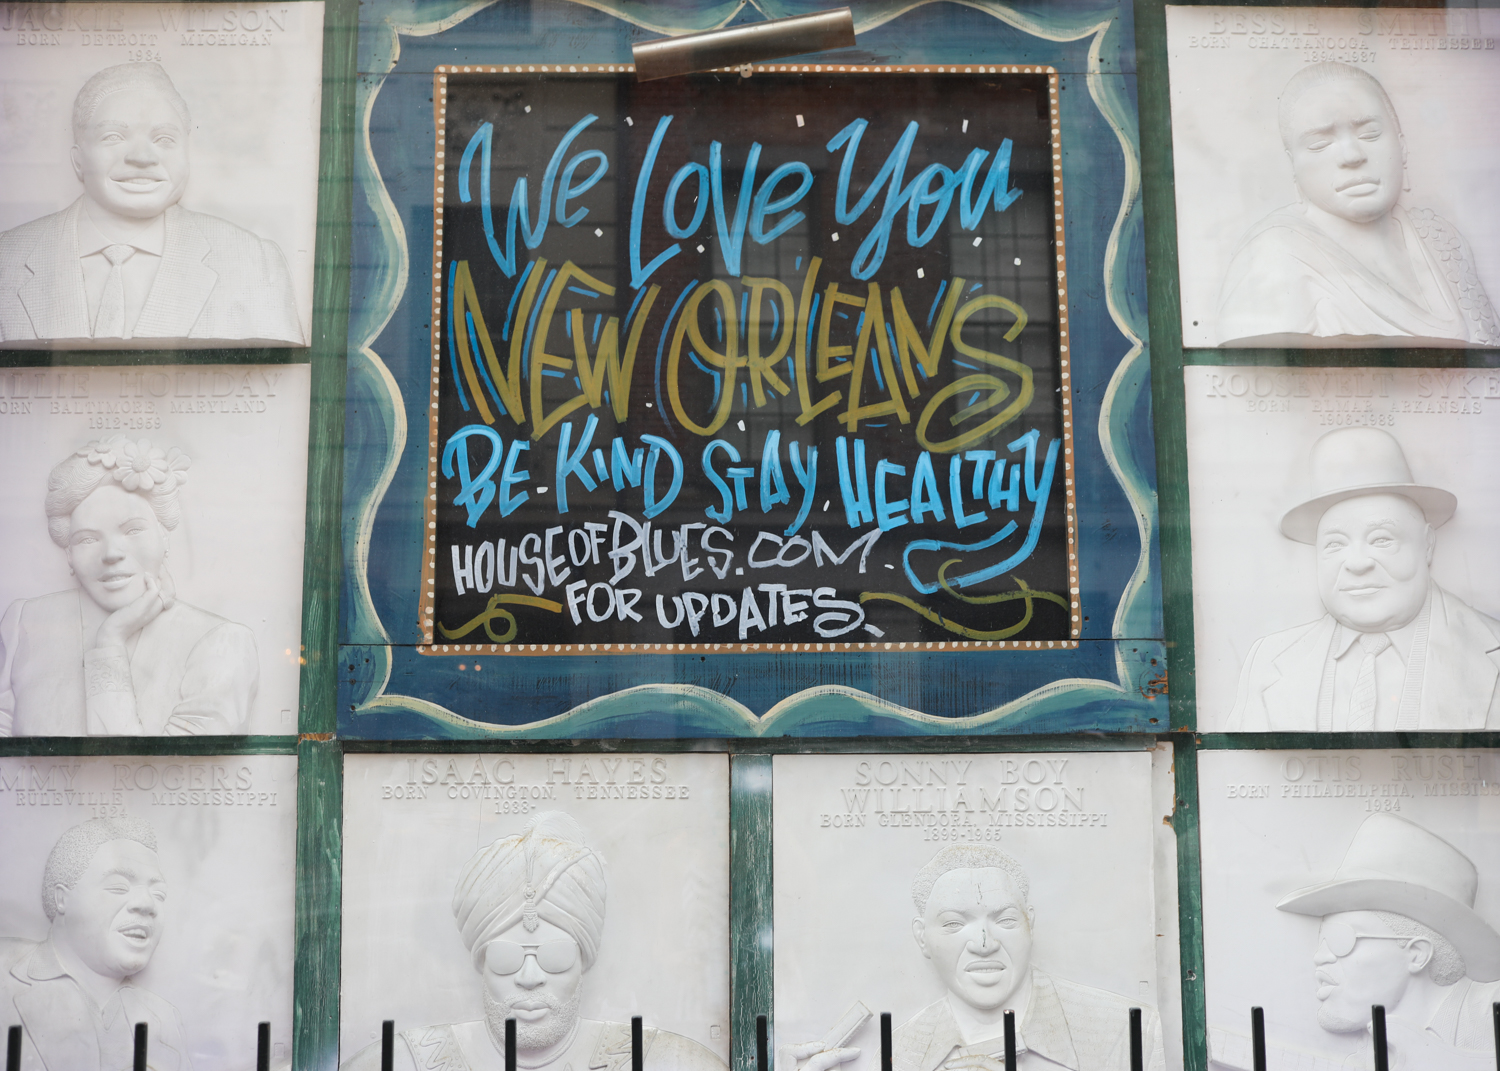 JACKIE WILSON
BORN DETROIT MICHIGAN
1934
BESSIE SMITH
BORN CHATTANOOGA TENNESSEE
We Love You
NEW ORLEANS
BE KIND STAY HEALTHY
HOUSEOFBLUES.COM
FOR UPDATES
HOLIDAY
BORN BALTIMORE, MARYLAND
1912-1959
ROOSEVELT SYKE
BORN ELMAR ARKANSAS
MMY ROGERS
RULEVILLE MISSISSIPPI
1924
ISAAC HAYES
BORN COVINGTON, TENNESSEE
1938-
SONNY BOY
WILLIAMSON
BORN GLENDORA, MISSISSIPPI
1899-1965
OTIS RUSH
BORN PHILADELPHIA, MISSISS
1934